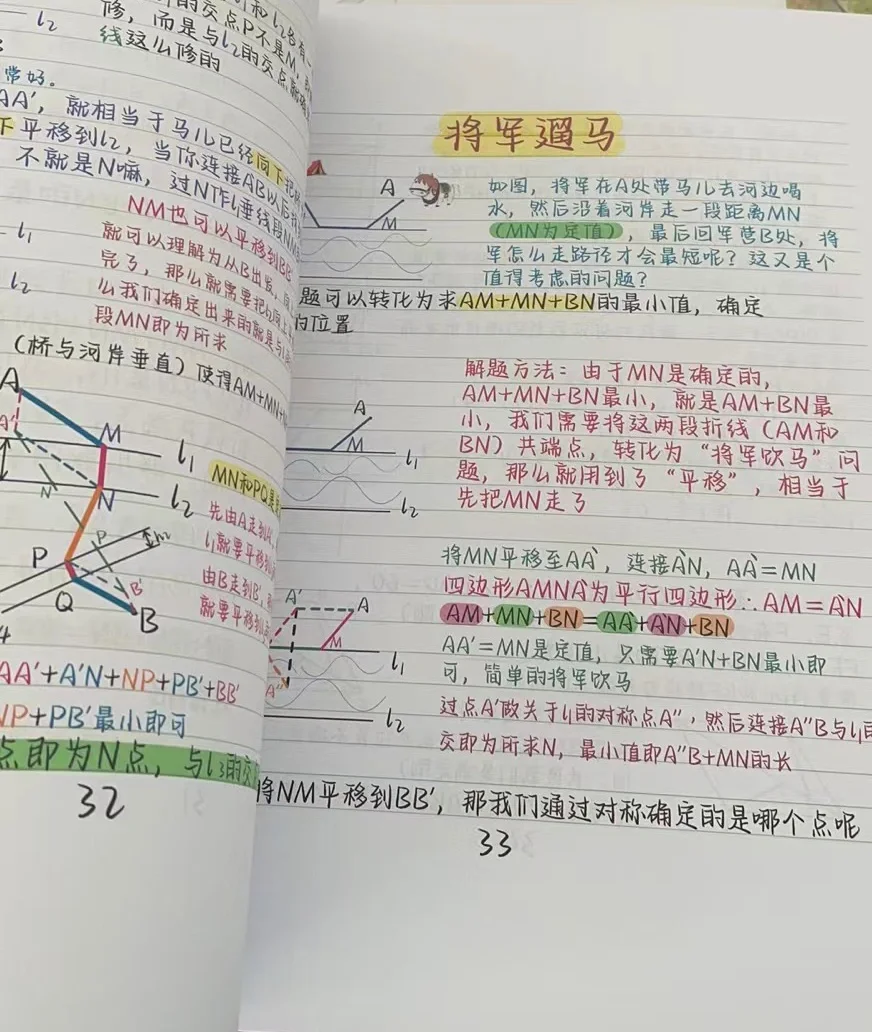 l₂
修，而是与l₂的交点
线这么修的
常好。
AA′，就相当于马儿已经向下
下平移到l₂，当你连接AB以后
不就是N嘛，过N作l₁垂线段NM
NM也可以平移到BB′
就可以理解为从B出发，
完了，那么就需要把l₂向上
么我们确定出来的就是与l₁
段MN即为所求
l₁
l₂
（桥与河岸垂直）使得AM+MN+
A
A′
M
l₁
N
N′
l₂
P
P′
Q
B′
B
MN和PQ是
先由A走到A′，
l₁就要平移到
由B走到B′，
就要平移到
AA′+A′N+NP+PB′+BB′
NP+PB′最小即可
点即为N点，与l₃的交
32
将军遛马
A
M
如图，将军在A处带马儿去河边喝
水，然后沿着河岸走一段距离MN
（MN为定值），最后回军营B处，将
军怎么走路径才会最短呢？这又是个
值得考虑的问题？
题可以转化为求AM+MN+BN的最小值，确定
的位置
解题方法：由于MN是确定的，
AM+MN+BN最小，就是AM+BN最
小，我们需要将这两段折线（AM和
BN）共端点，转化为“将军饮马”问
题，那么就用到了“平移”，相当于
先把MN走了
A
M
l₁
l₂
将MN平移至AA′，连接A′N，AA′=MN
四边形AMNA′为平行四边形∴AM=A′N
AM+MN+BN=AA′+A′N+BN
AA′=MN是定值，只需要A′N+BN最小即
可，简单的将军饮马
过点A′做关于l₁的对称点A″，然后连接A″B与l₁的
交即为所求N，最小值即A″B+MN的长
A′
A
M
l₁
A″
l₂
将NM平移到BB′，那我们通过对称确定的是哪个点呢
33